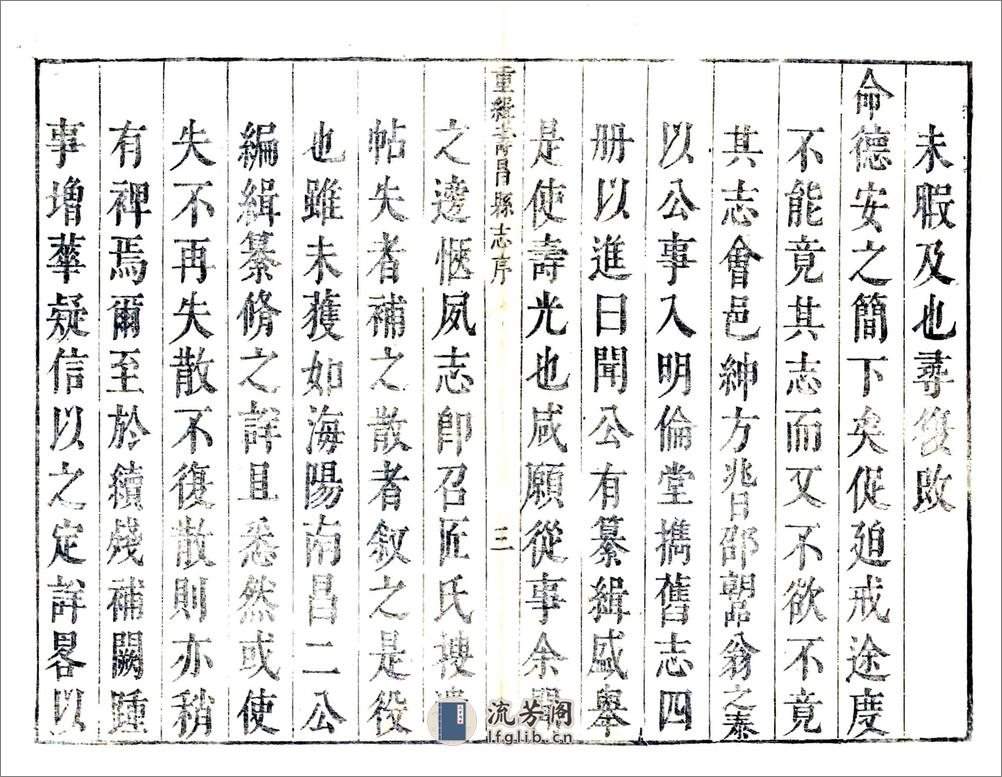 未暇及也尋復改
命德安之簡下矣促廹戒途度
不能竟其志而又不欲不竟
其志會邑紳方兆日邵朝邛翁之泰
以公事入明倫堂攜舊志四
册以進曰聞公有纂緝盛舉
是使壽光也咸願從事余
之遂愜夙志卽召匠氏
重緝壽昌縣志序 三
帖失者補之散者叙之是役
也雖未獲如海陽南昌二公
編緝纂脩之詳且悉然或使
失不再失散不復散則亦稍
有裨焉爾至於續殘補闕踵
事增華疑信以之定詳畧以
流芳阁
lfglib.cn